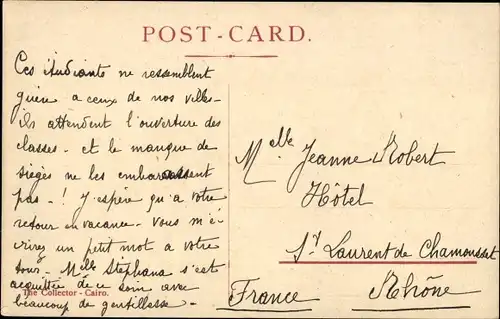 POST-CARD.
Ces étudiants ne ressemblent
guère a ceux de nos villes-
ils attendent l'ouverture des
classes - et le manque de
sièges ne les embarassent
pas -! J'espère qu'a votre
retour en vacance - vous m'é-
crirez un petit mot a votre
tour - Melle Stephana s'est
acquittée de ce soin avec
beaucoup de gentillesse -
The Collector - Cairo.
Melle Jeanne Robert
Hôtel
St Laurent de Chamousset
Rhône
France